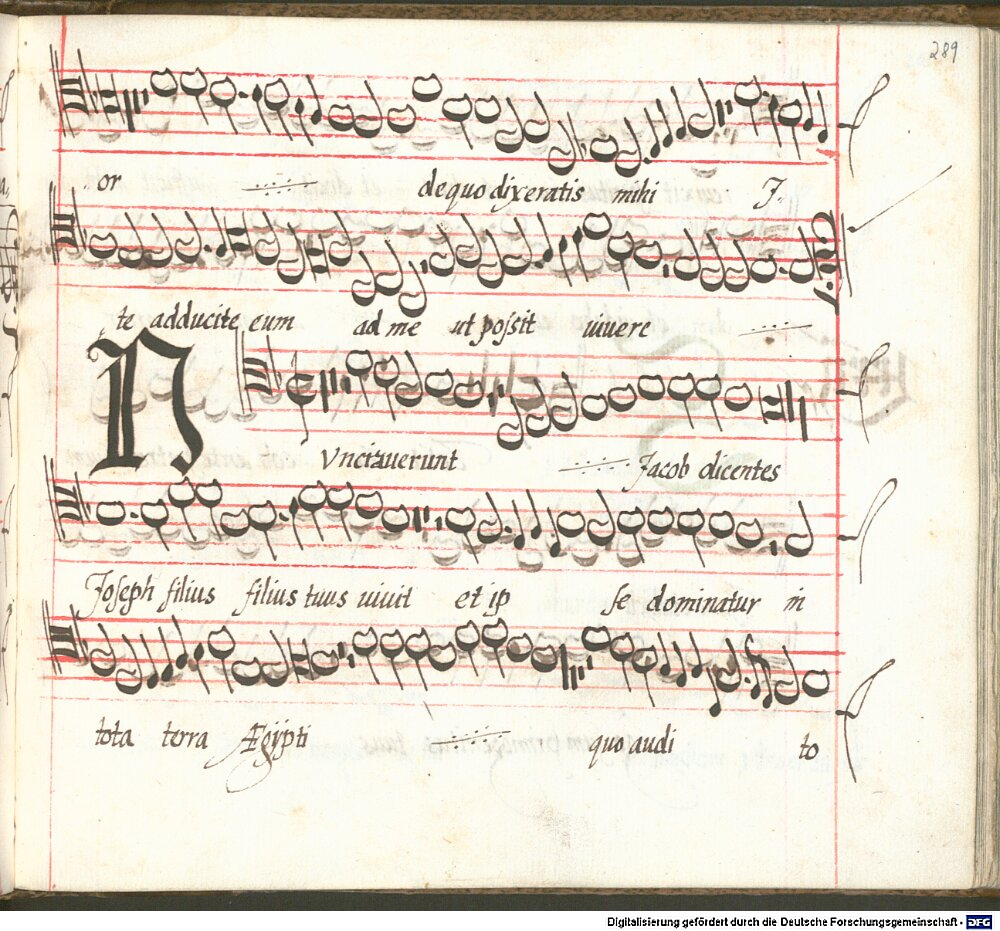 289
or dequo dixeratis mihi J-
te adducite eum ad me ut possit uiuere
N Vnciauerunt Jacob dicentes
Joseph filius filius tuus uiuit et ip se dominatur in
tota terra Ægÿpti quo audi to
Digitalisierung gefördert durch die Deutsche Forschungsgemeinschaft - DFG